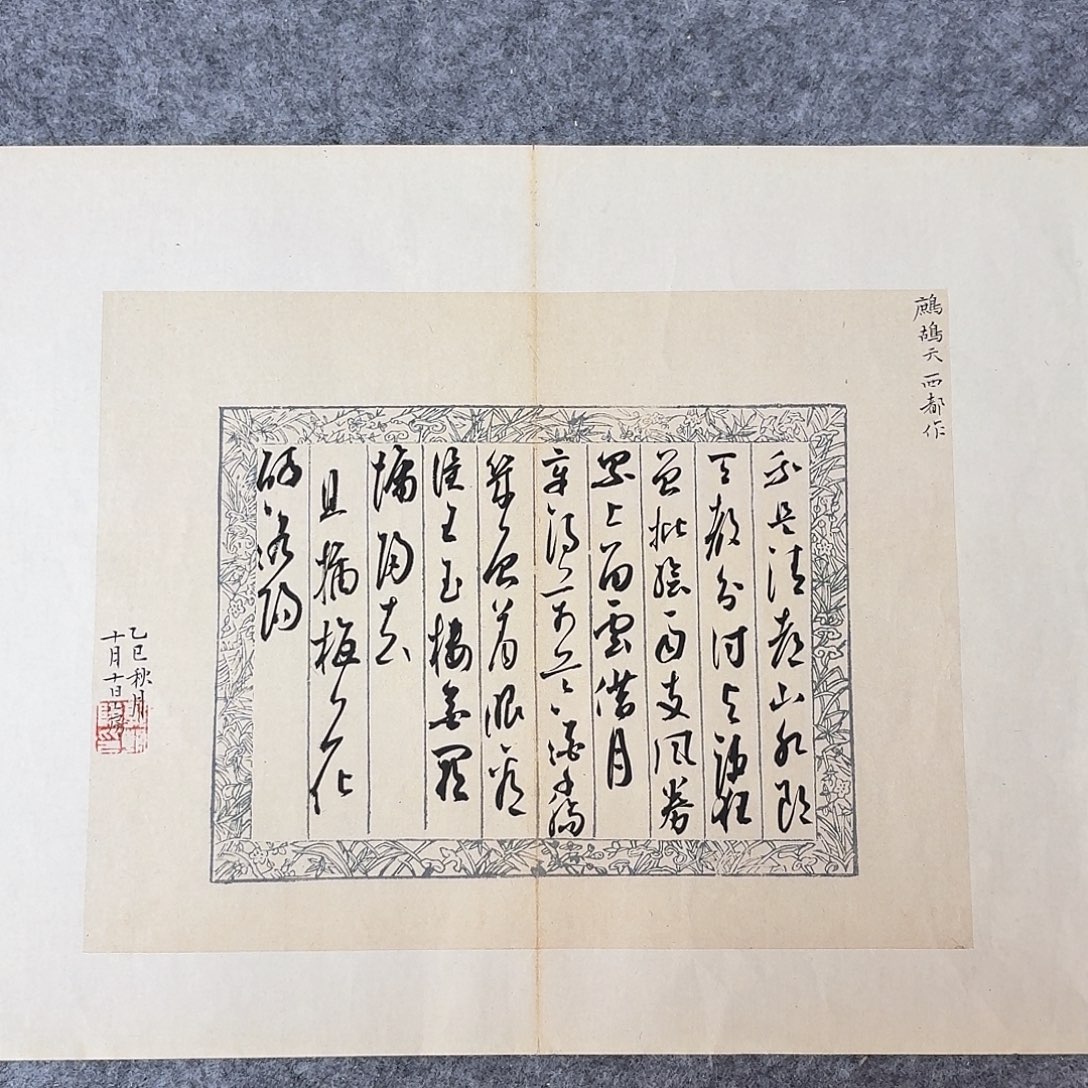 鷓鴣天 西都作
我是清都山水郎
天教分付与疏狂
曾批給雨支風券
累上留雲借月
章詩万首酒千觴
幾曾着眼看
侯王玉樓金闕
慵歸去
且插梅花
醉洛陽
乙巳秋月
十月十日